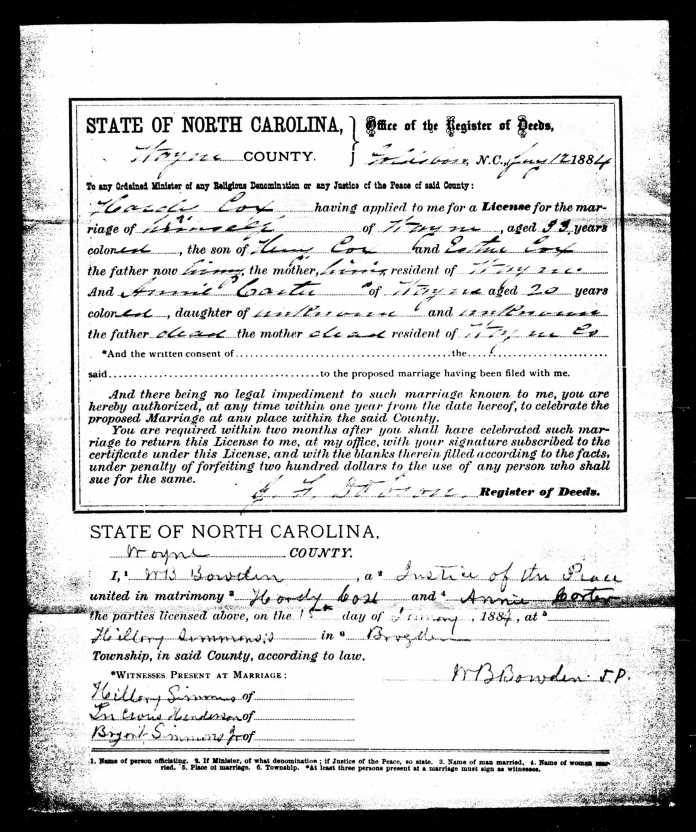 STATE OF NORTH CAROLINA, Office of the Register of Deeds,
Wayne COUNTY. Goldsboro, N.C., Jany 12 1884
To any Ordained Minister of any Religious Denomination or any Justice of the Peace of said County:
Hardy Cox having applied to me for a License for the mar-
riage of himself of Wayne, aged 33 years
colored, the son of Henry Cox and Esther Cox
the father now living, the mother, living, resident of Wayne
And Annie Carter of Wayne aged 20 years
colored, daughter of unknown and unknown
the father dead the mother dead resident of Wayne Co
*And the written consent of the
said to the proposed marriage having been filed with me.
And there being no legal impediment to such marriage known to me, you are
hereby authorized, at any time within one year from the date hereof, to celebrate the
proposed Marriage at any place within the said County.
You are required within two months after you shall have celebrated such mar-
riage to return this License to me, at my office, with your signature subscribed to the
certificate under this License, and with the blanks therein filled according to the facts,
under penalty of forfeiting two hundred dollars to the use of any person who shall
sue for the same.
Register of Deeds.
STATE OF NORTH CAROLINA,
Wayne COUNTY.
I,¹ WB Bowden, a² Justice of the Peace
united in matrimony³ Hardy Cox and⁴ Annie Carter
the parties licensed above, on the day of January, 1884, at⁵
Hillory Simmons's in⁶ Brogden
Township, in said County, according to law.
WB Bowden J.P.
*WITNESSES PRESENT AT MARRIAGE:
Hillory Simmons of
Henderson of
Bryant Simmons Jr of
1. Name of person officiating. 2. If Minister, of what denomination; if Justice of the Peace, so state. 3. Name of man married. 4. Name of woman mar-
ried. 5. Place of marriage. 6. Township. *At least three persons present at a marriage must sign as witnesses.